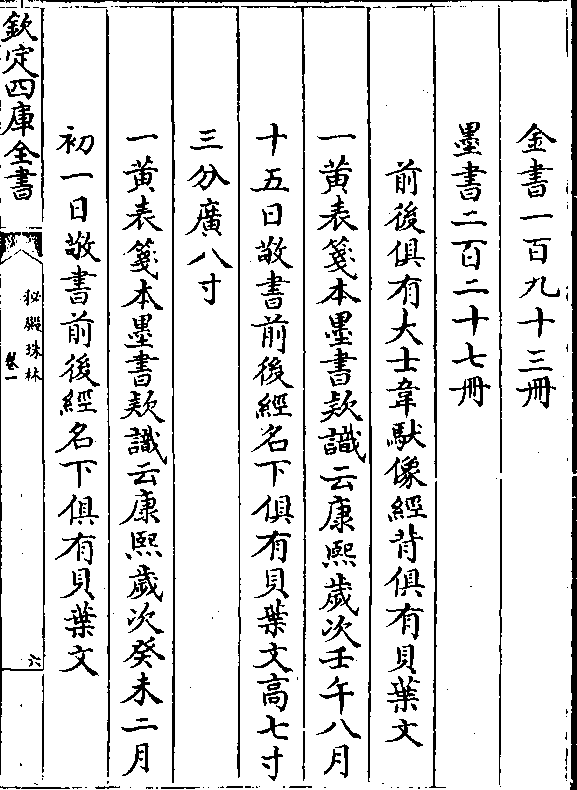 金書一百九十三冊
墨書二百二十七冊
前後俱有大士韋馱像經背俱有貝葉文
一黄表箋本墨書欵識云康熙歲次壬午八月
十五日敬書前後經名下俱有貝葉文高七寸
三分廣八寸
一黄表箋本墨書欵識云康熙歲次癸未二月
初一日敬書前後經名下俱有貝葉文
欽定四庫全書
秘殿珠林
卷一
六